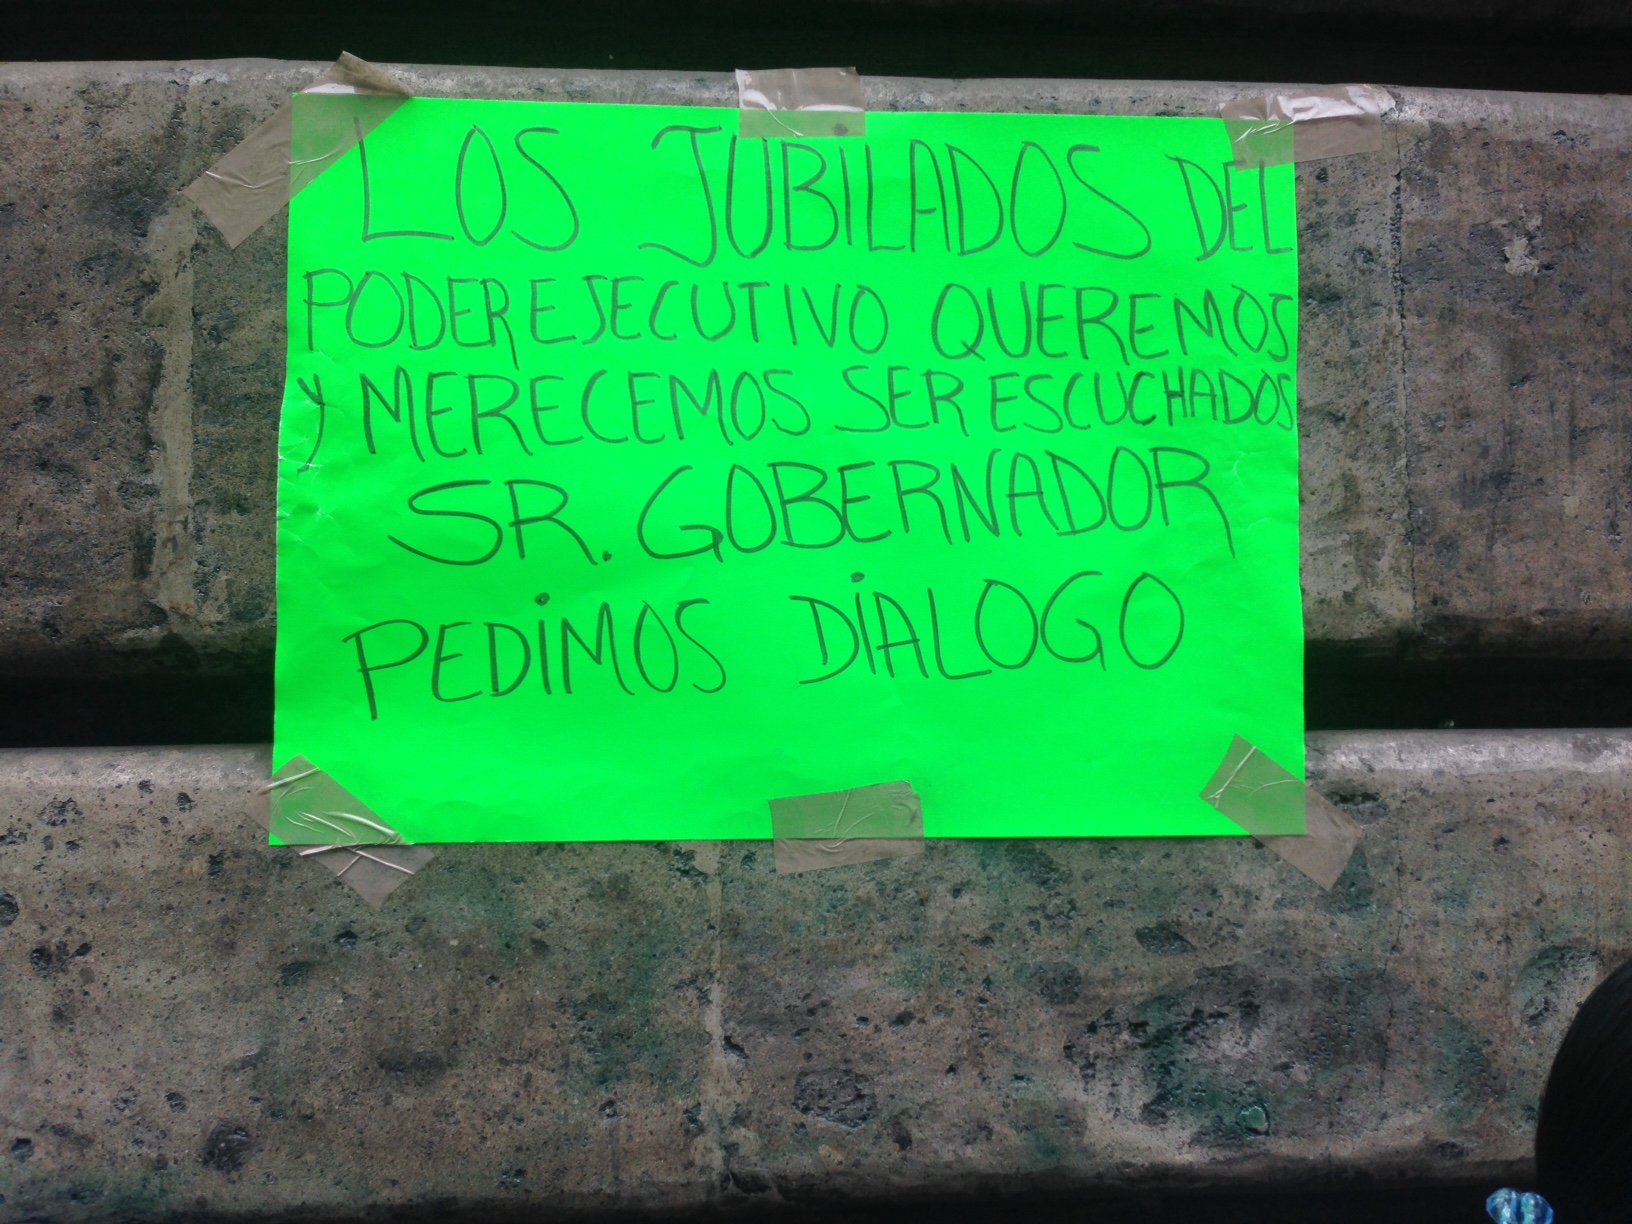 LOS JUBILADOS DEL
PODER EJECUTIVO QUEREMOS
Y MERECEMOS SER ESCUCHADOS
SR. GOBERNADOR
PEDIMOS DIALOGO